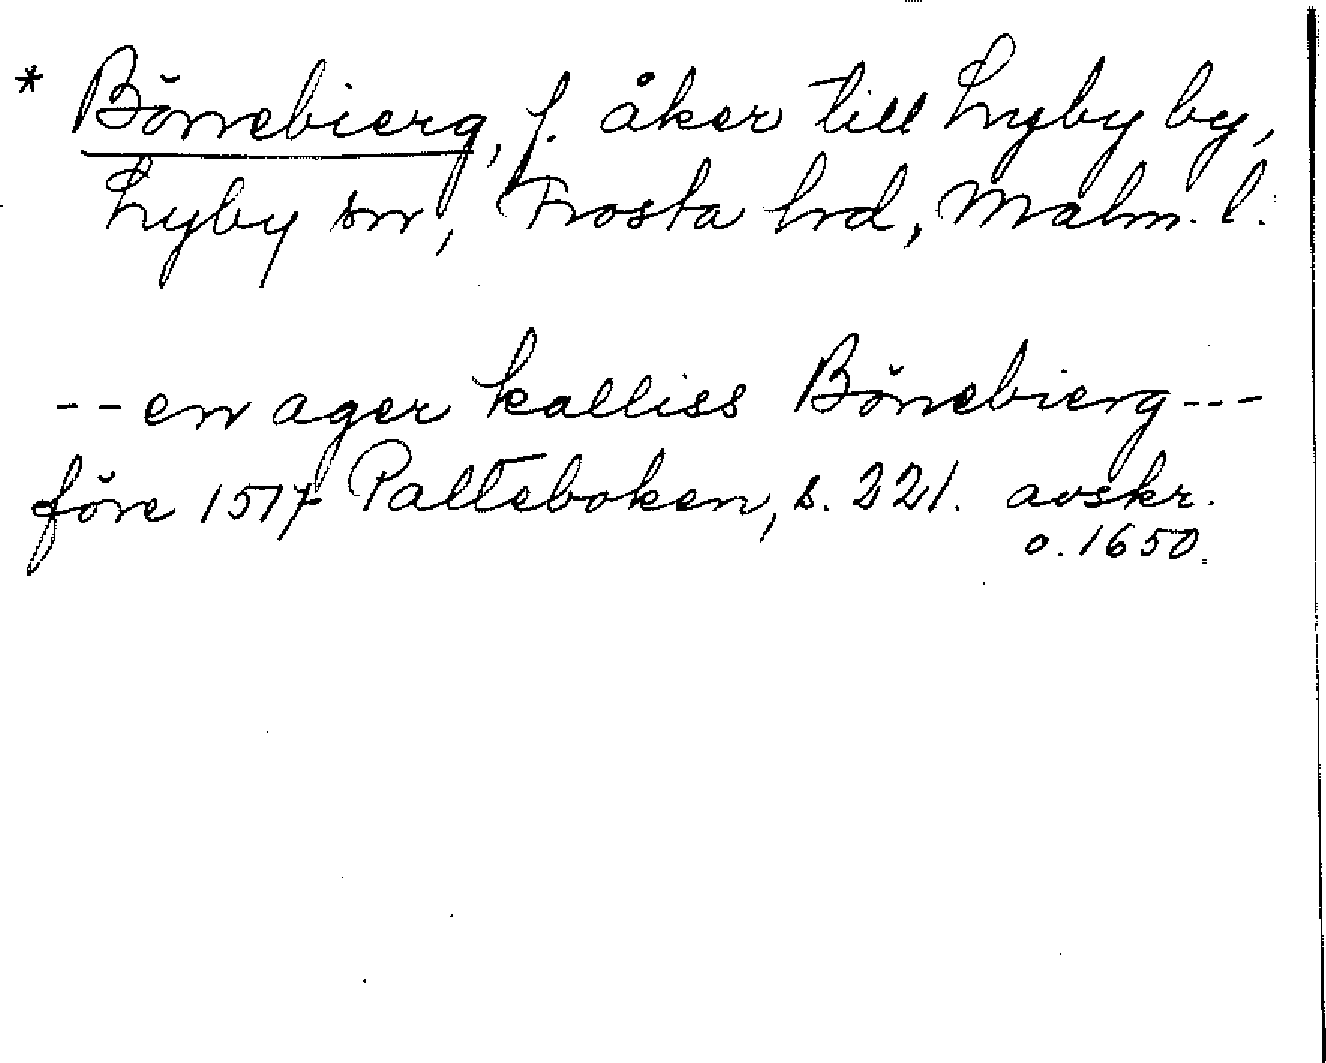 * Bönebierg, f. åker till Lyby by,
Lyby sn, Frosta hd, Malm. l.
-- en ager kalliss Bönebierg ---
före 1517 Palteboken, s. 221. avskr.
o. 1650.